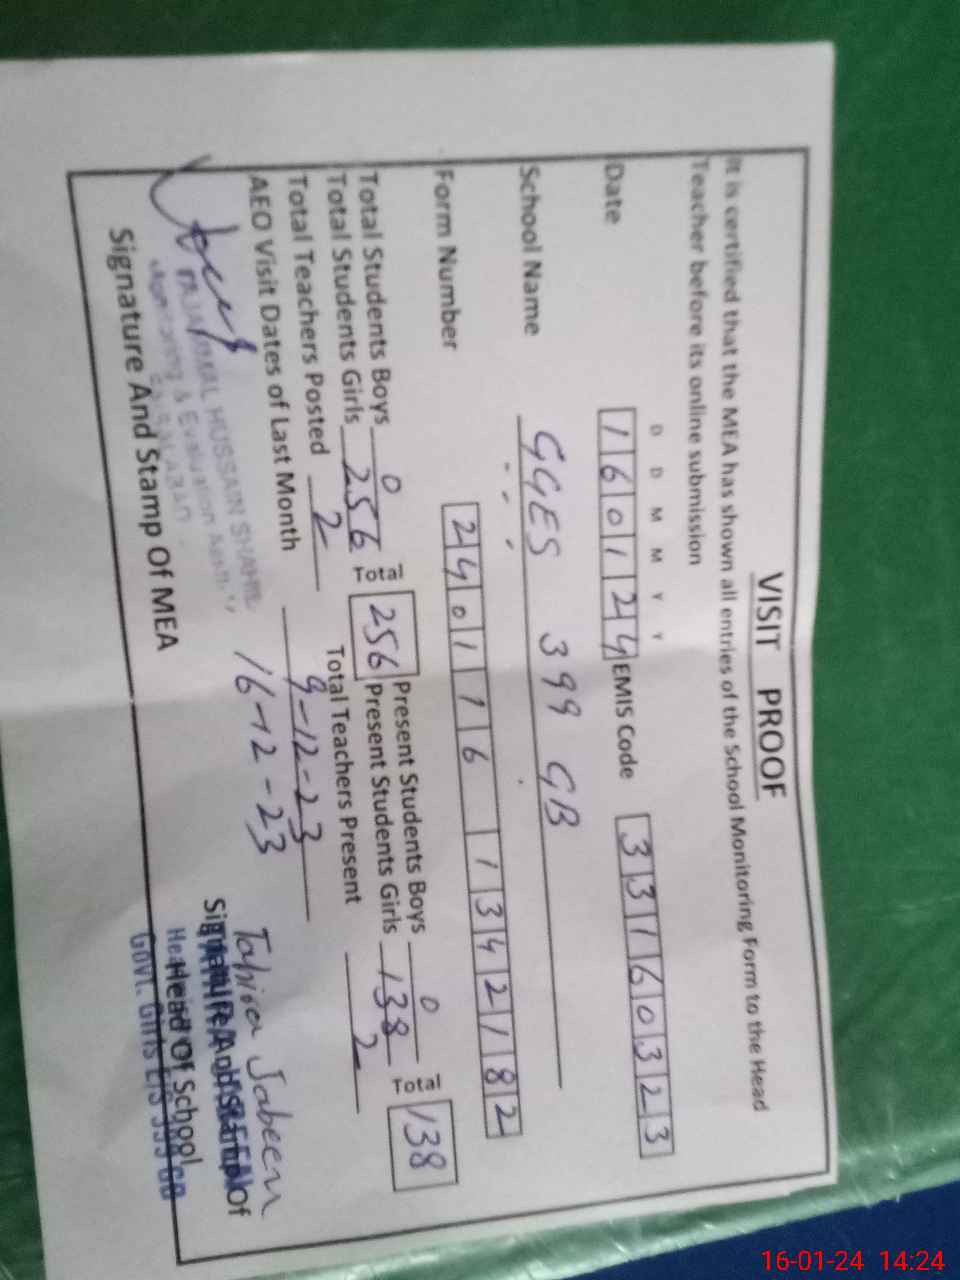 VISIT PROOF
It is certified that the MEA has shown all entries of the School Monitoring Form to the Head
Teacher before its online submission
D D M M Y Y
Date 160124 EMIS Code 33160323
School Name GGES 399 GB
Form Number 240116 1342182
Total Students Boys 0 Total 256 Present Students Boys 0 Total 138
Total Students Girls 256 Present Students Girls 138
Total Teachers Posted 2 Total Teachers Present 2
AEO Visit Dates of Last Month 9-12-23
16-12-23
HUSSAIN
Monitoring & Evaluation
Signature And Stamp Of MEA
Tahira Jabeen
Signature And Stamp Of
Head Of School
GOVT. Girls E/S 399 GB
16-01-24 14:24